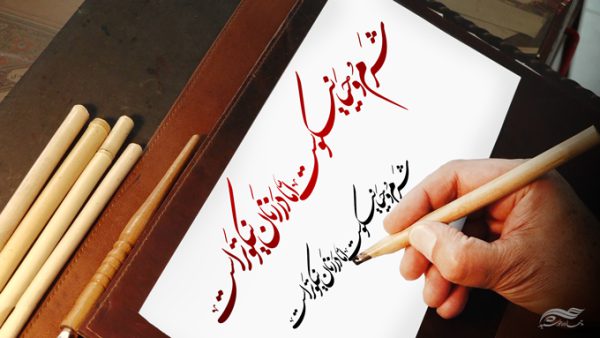 شرم و حیا نیکوست
اما در زنان نیکوتر است
شرم و حیا نیکوست
اما در زنان نیکوتر است